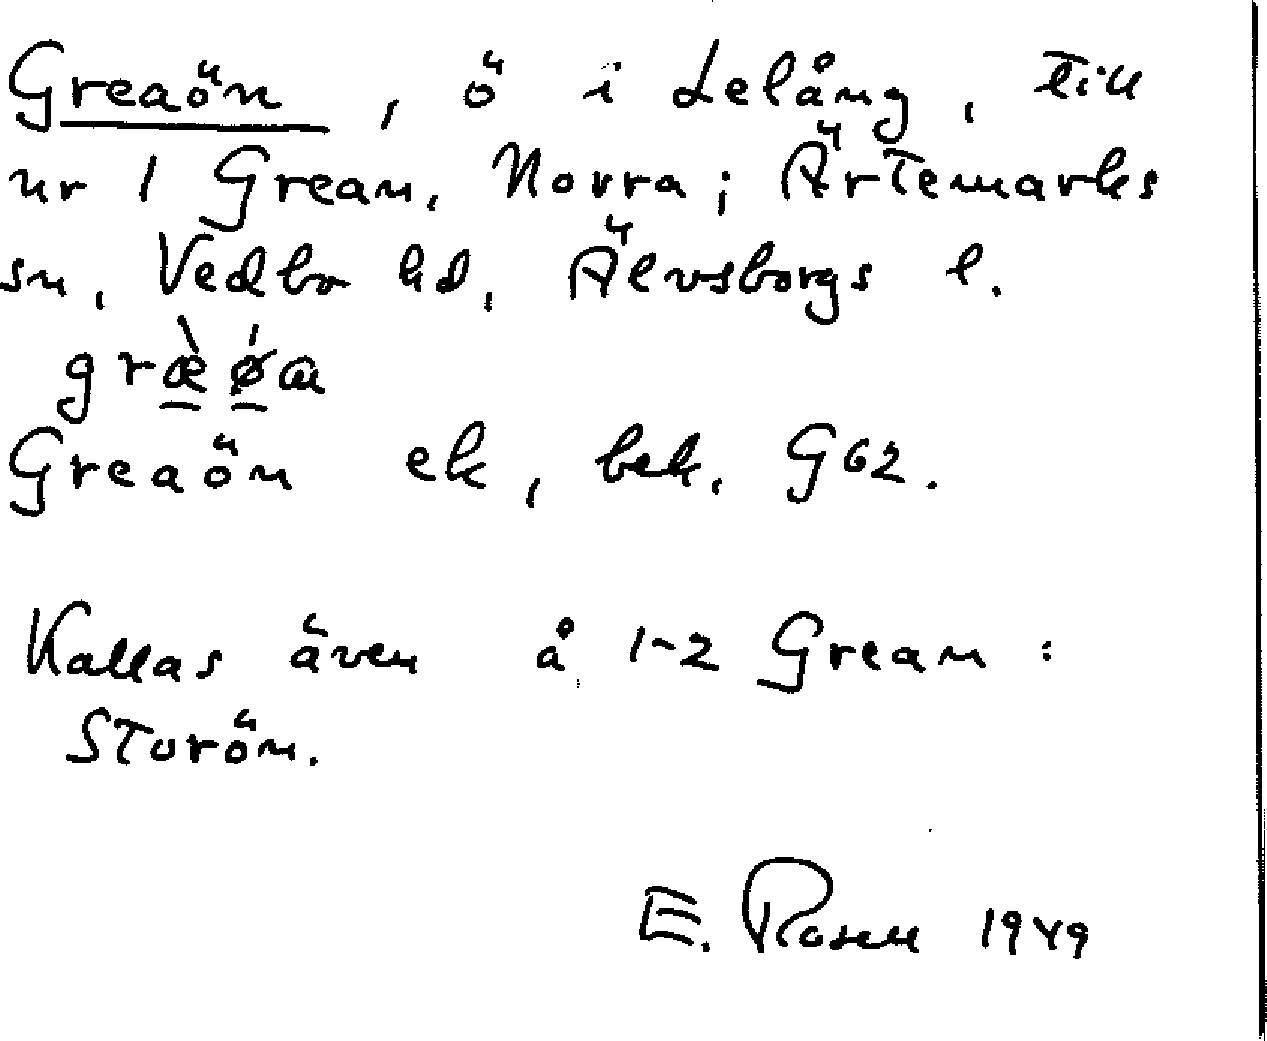 Greaön, ö i Lelång, till
nr 1 Grean, Norra; Ärtemarks
sn, Vedbo hd, Älvsborgs l.
græ̀ǿa
Greaön ek, bek. G62.
Kallas även å 1-2 Grean:
Storön.
E. Rosen 1949